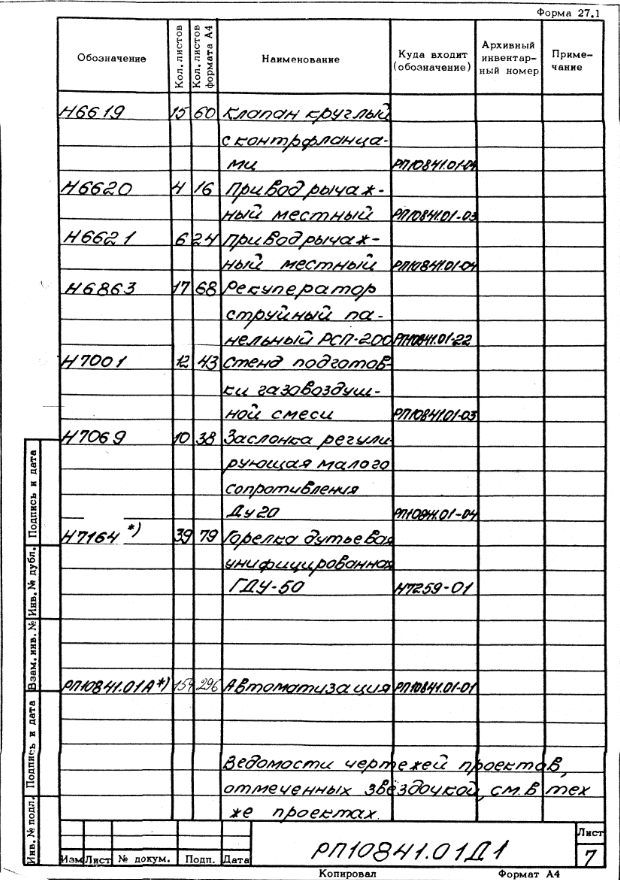 Форма 27.1
Обозначение Кол. листов Кол. листов формата А4 Наименование Куда входит (обозначение) Архивный инвентар-ный номер Приме-чание
Н6619 15 60 Клапан круглый
с контрфланца-
ми РП10841.01-04
Н6620 4 16 Привод рычаж-
ный местный РП10841.01-03
Н6621 6 24 Привод рычаж-
ный местный РП10841.01-04
Н6863 17 68 Рекуператор
струйный па-
нельный РСП-200 РП10841.01-22
Н7001 12 43 Стенд подготов-
ки газовоздуш-
ной смеси РП10841.01-03
Н7069 10 38 Заслонка регули-
рующая малого
сопротивления
Ду20 РП10841.01-04
Н7164 *) 39 79 Горелка дутьевая
унифицированная
ГДУ-50 Н7259-01
РП10841.01А*) 154 296 Автоматизация РП10841.01-01
Ведомости чертежей проектов,
отмеченных звёздочкой, см. в тех
же проектах.
Инв. № подл. Подпись и дата Взам. инв. № Инв. № дубл. Подпись и дата
РП10841.01Д1
Лист
7
Изм Лист № докум. Подп. Дата
Копировал Формат А4